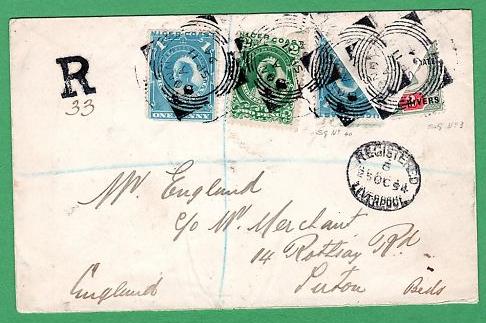 NIGER COAST NIGER COAST
ONE PENNY
RIVERS
R
33
SG No 60
SG No 3
REGISTERED
5 OC 94
LIVERPOOL
Mr England
c/o W. Merchant
14 Rothsay Rd
Luton Beds
England